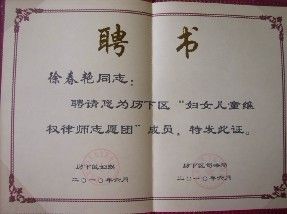 聘书
徐春艳同志：
聘请您为历下区“妇女儿童维
权律师志愿团”成员，特发此证。
历下区妇联 历下区司法局
二〇一〇年六月 二〇一〇年六月